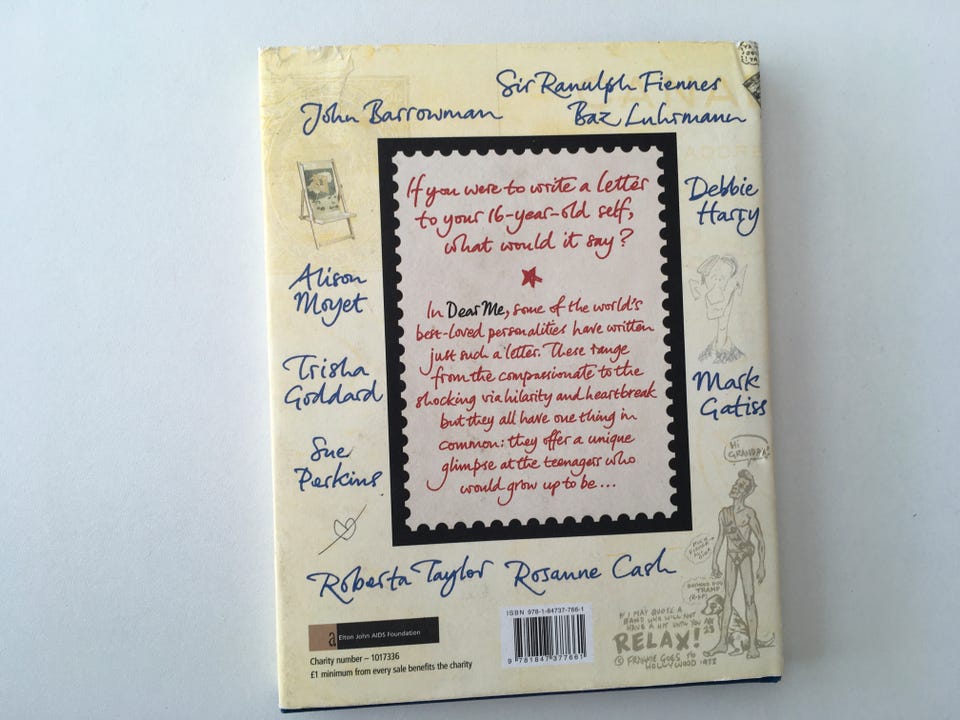 Sir Ranulph Fiennes
John Barrowman
Baz Luhrmann
If you were to write a letter
to your 16-year-old self,
what would it say?
Debbie
Harry
Alison
Moyet
In Dear Me, some of the world's
best-loved personalities have written
just such a letter. These range
from the compassionate to the
shocking via hilarity and heartbreak
but they all have one thing in
common: they offer a unique
glimpse at the teenagers who
would grow up to be ...
Trisha
Goddard
Mark
Gatiss
Sue
Perkins
HI
GRANDPA!
Roberta Taylor
Rosanne Cash
BROWNE DOG
TRAMP
(R.I.P)
ISBN 978-1-84737-766-1
9 781847 377661
a Elton John AIDS Foundation
Charity number – 1017336
£1 minimum from every sale benefits the charity
IF I MAY QUOTE A
BAND WHO WILL NOT
HAVE A HIT UNTIL YOU ARE
23
RELAX!
© FRANKIE GOES TO
HOLLYWOOD